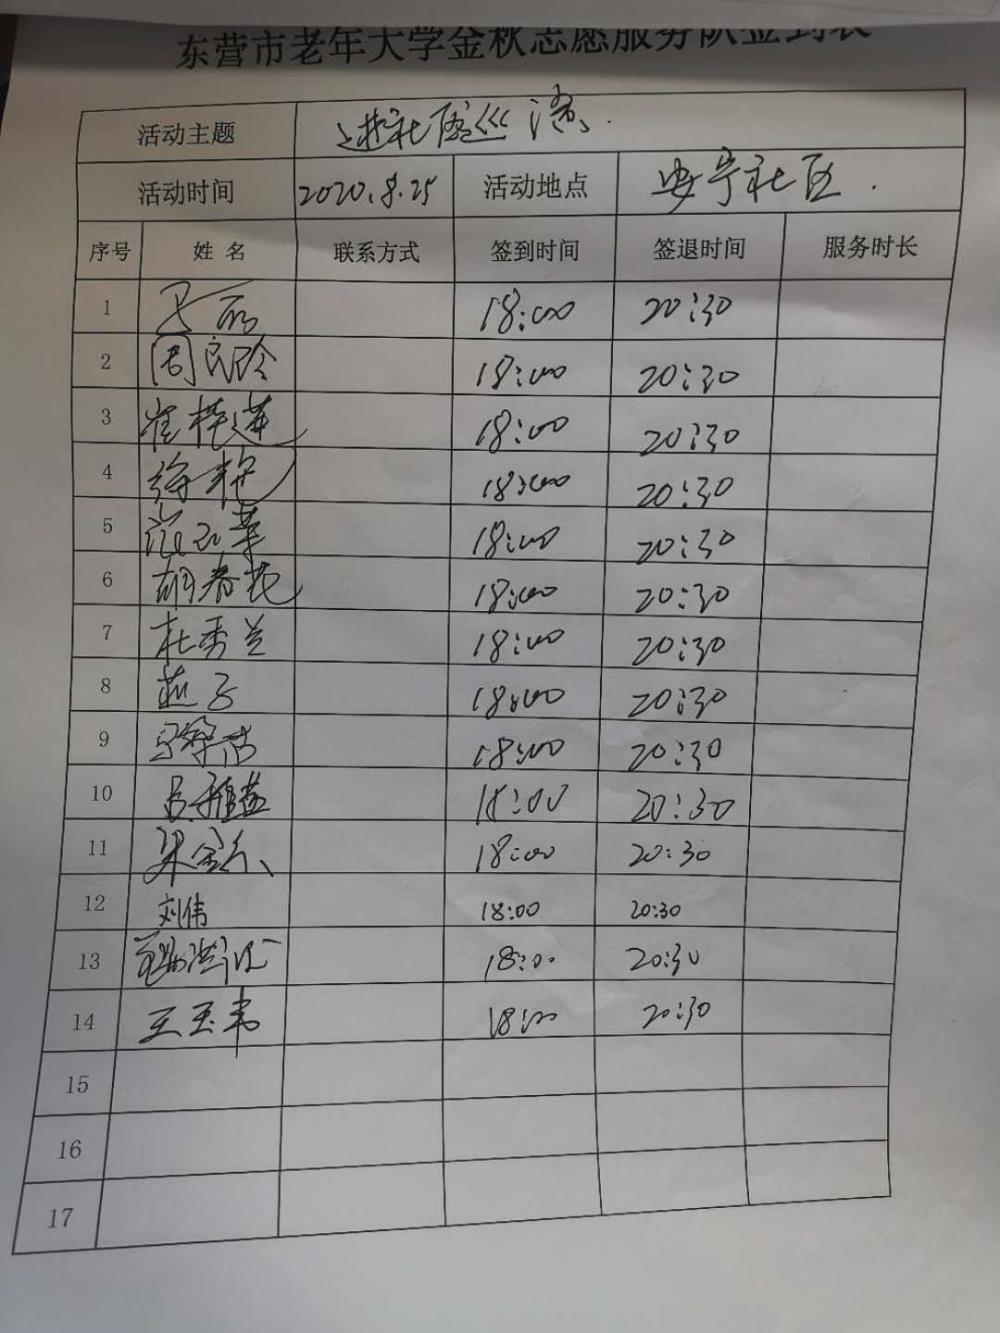 东营市老年大学金秋志愿服务队签到表
活动主题 进社区巡演.
活动时间 2020.8.25 活动地点 安宁社区.
序号 姓名 联系方式 签到时间 签退时间 服务时长
1 18:00 20:30
2 周民玲 18:00 20:30
3 崔桂莲 18:00 20:30
4 徐艳 18:00 20:30
5 18:00 20:30
6 胡春花 18:00 20:30
7 杜秀兰 18:00 20:30
8 燕子 18:00 20:30
9 18:00 20:30
10 18:00 20:30
11 18:00 20:30
12 刘伟 18:00 20:30
13 18:00 20:30
14 王玉韦 18:00 20:30
15
16
17